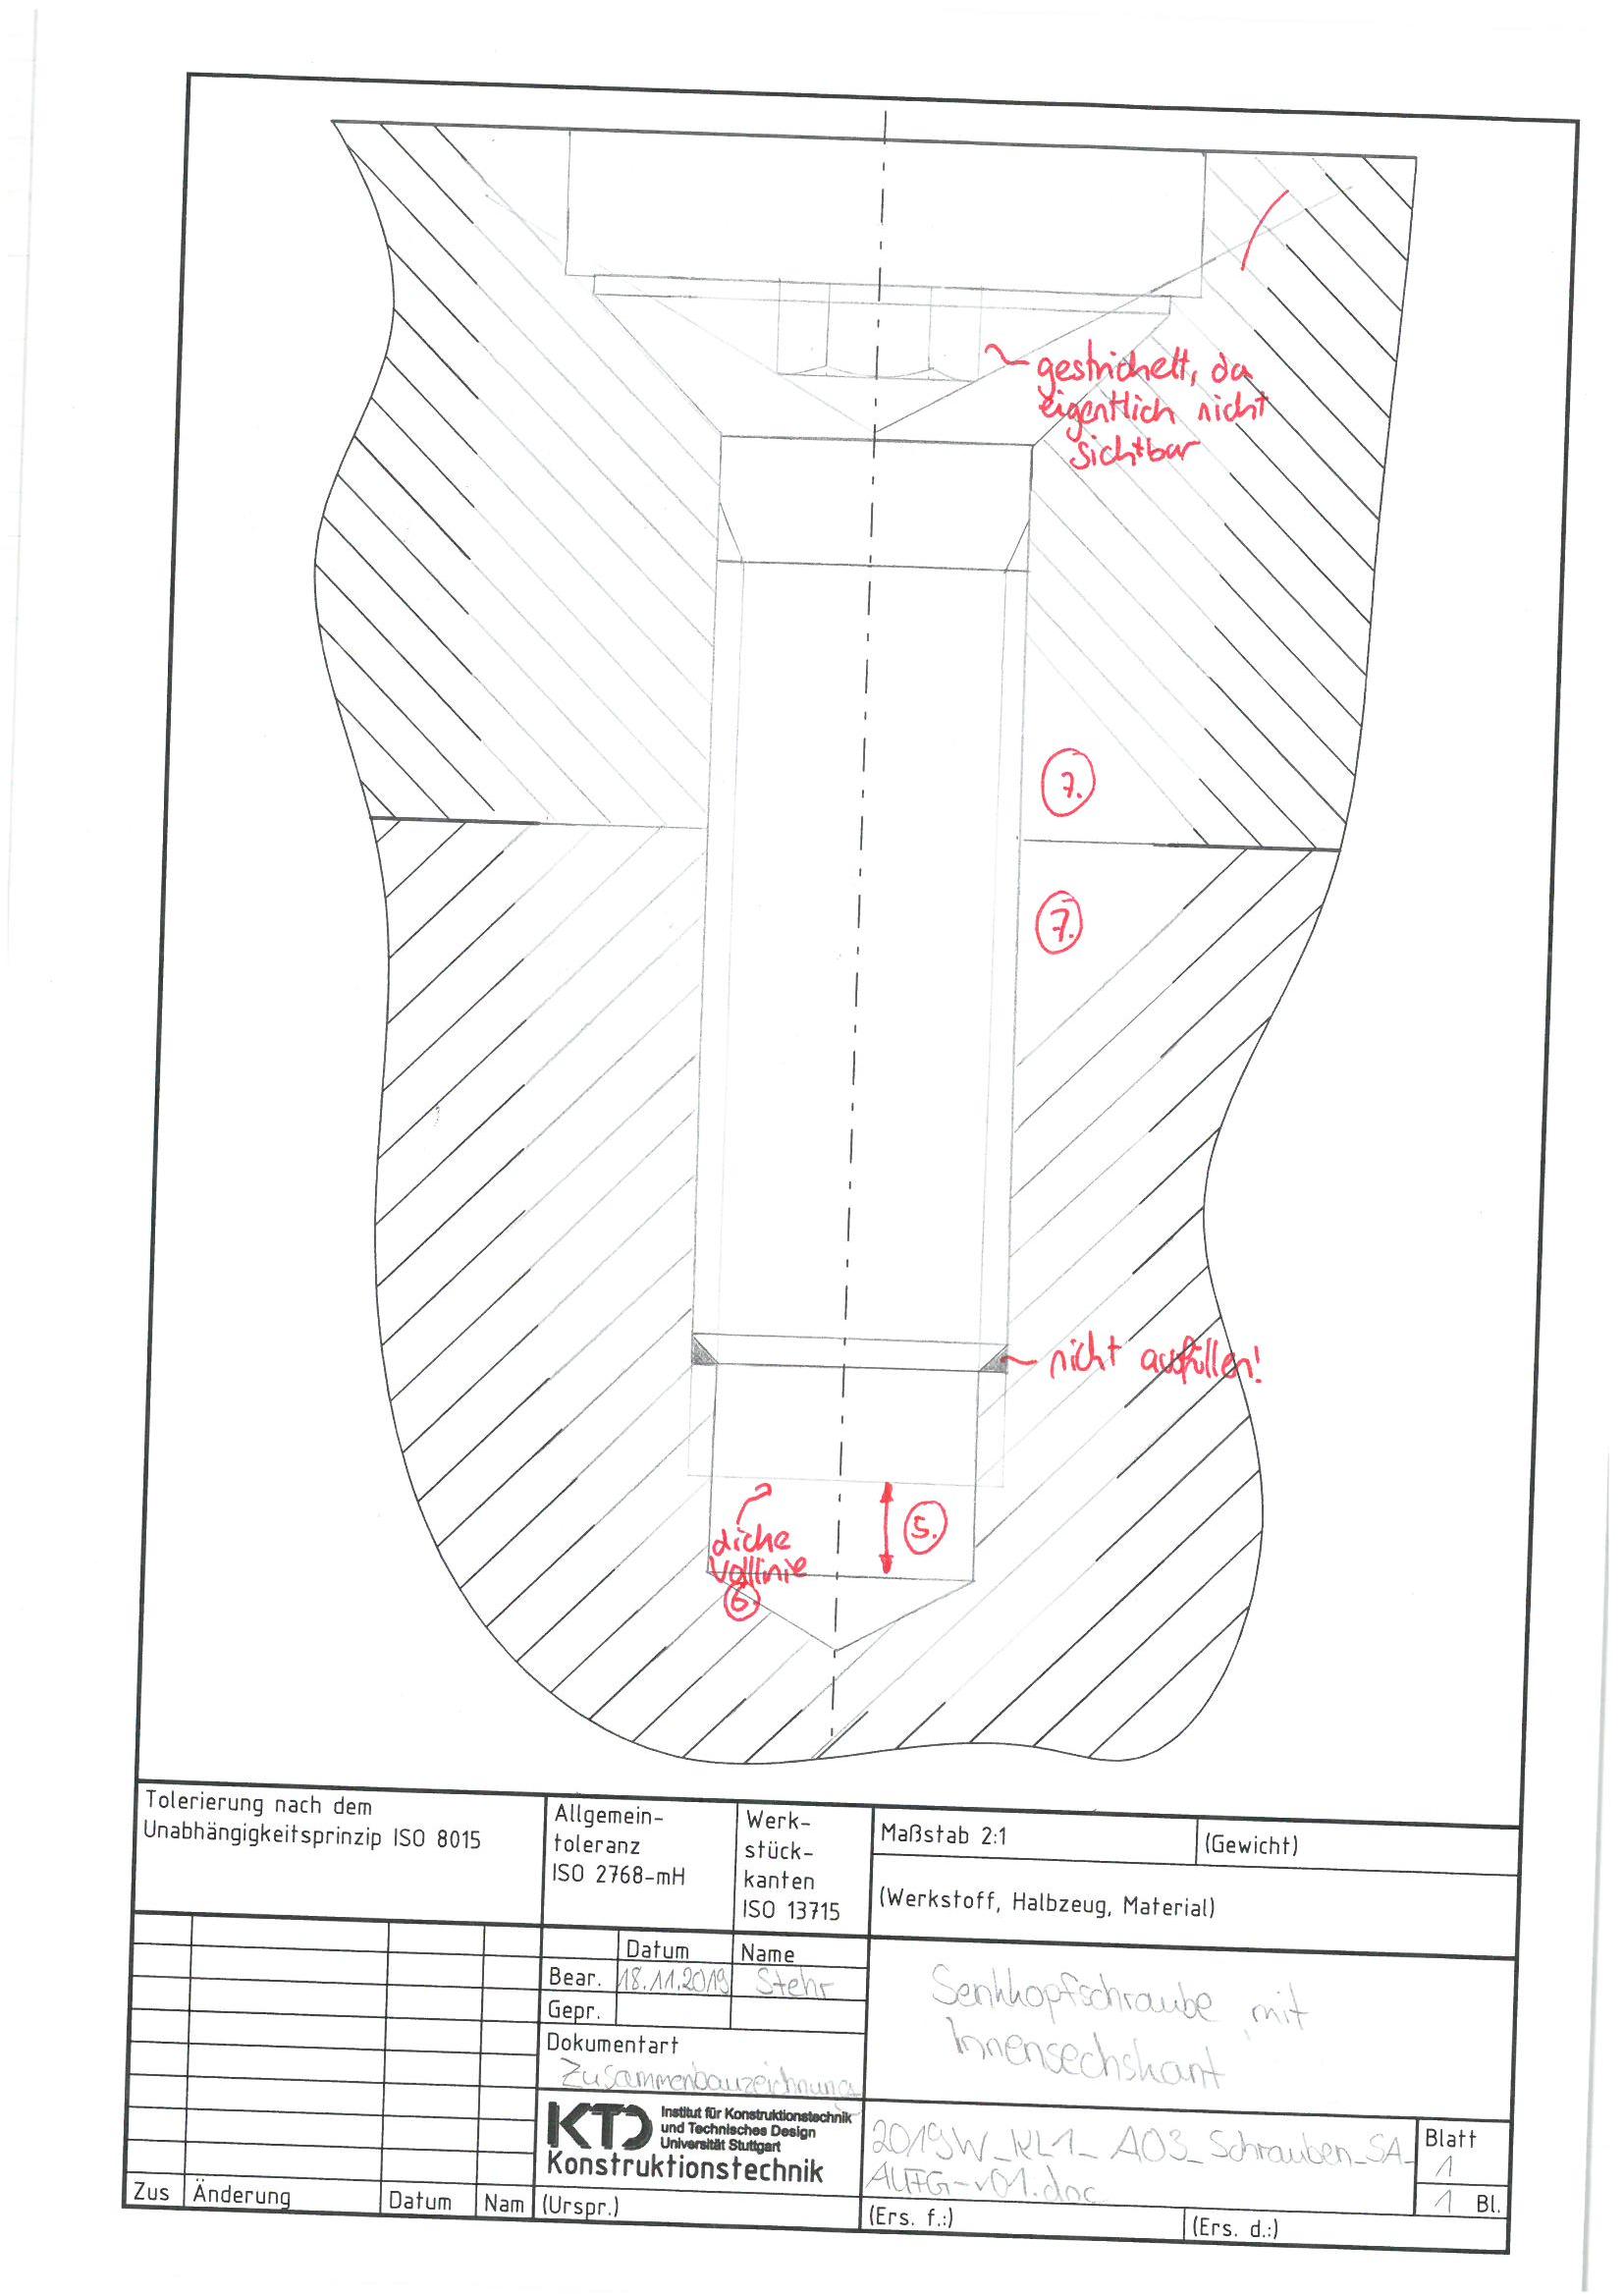 gestrichelt, da
eigentlich nicht
sichtbar
7.
7.
nicht ausfüllen!
5.
dicke
Volllinie
6.
Tolerierung nach dem
Unabhängigkeitsprinzip ISO 8015
Allgemein-
toleranz
ISO 2768-mH
Werk-
stück-
kanten
ISO 13715
Maßstab 2:1
(Gewicht)
(Werkstoff, Halbzeug, Material)
Datum
Name
Bear.
18.11.2019
Stehr
Gepr.
Dokumentart
Zusammenbauzeichnung
Senkkopfschraube mit
Innensechskant
KTD
Institut für Konstruktionstechnik
und Technisches Design
Universität Stuttgart
Konstruktionstechnik
2019W_KL1_A03_Schrauben_SA_
Blatt
1
1 Bl.
Zus
Änderung
Datum
Nam
(Urspr.)
(Ers. f.:)
(Ers. d.:)